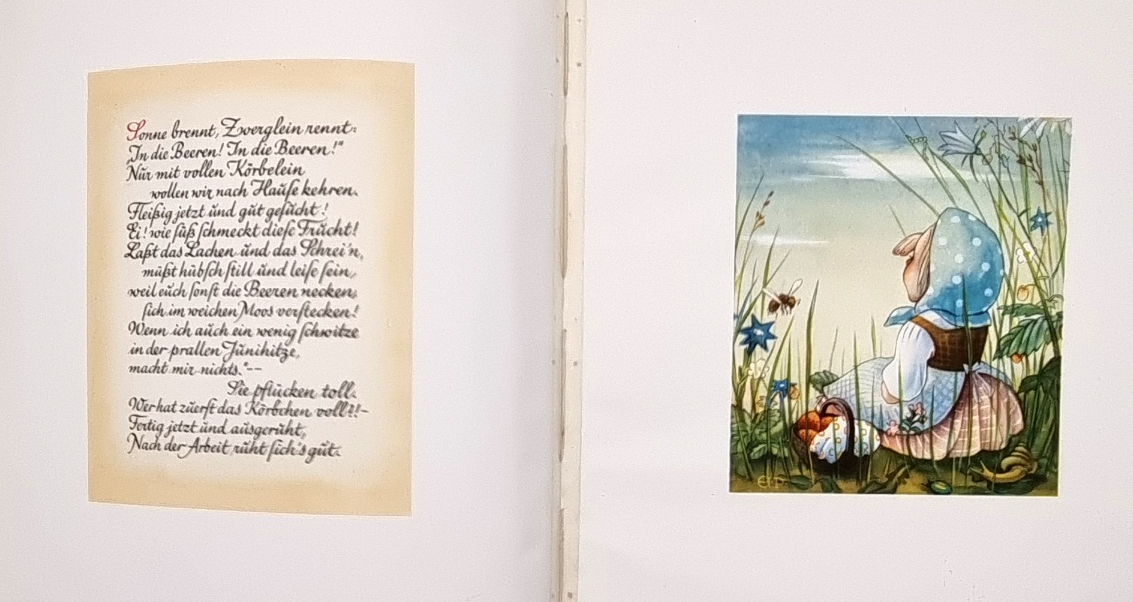 Sonne brennt, Zwerglein rennt:
„In die Beeren! In die Beeren!“
Nur mit vollen Körbelein
wollen wir nach Hauſe kehren.
Fleißig jetzt und gut geſucht!
Ei! wie ſüß ſchmeckt dieſe Frucht!
Laßt das Lachen und das Schrei'n,
müßt hübſch ſtill und leiſe ſein,
weil euch ſonſt die Beeren necken,
ſich im weichen Moos verſtecken!
Wenn ich auch ein wenig ſchwitze
in der prallen Junihitze,
macht mir nichts.“--
Sie pflücken toll.
Wer hat zuerſt das Körbchen voll?!-
Fertig jetzt und ausgeruht,
Nach der Arbeit ruht ſich's gut.